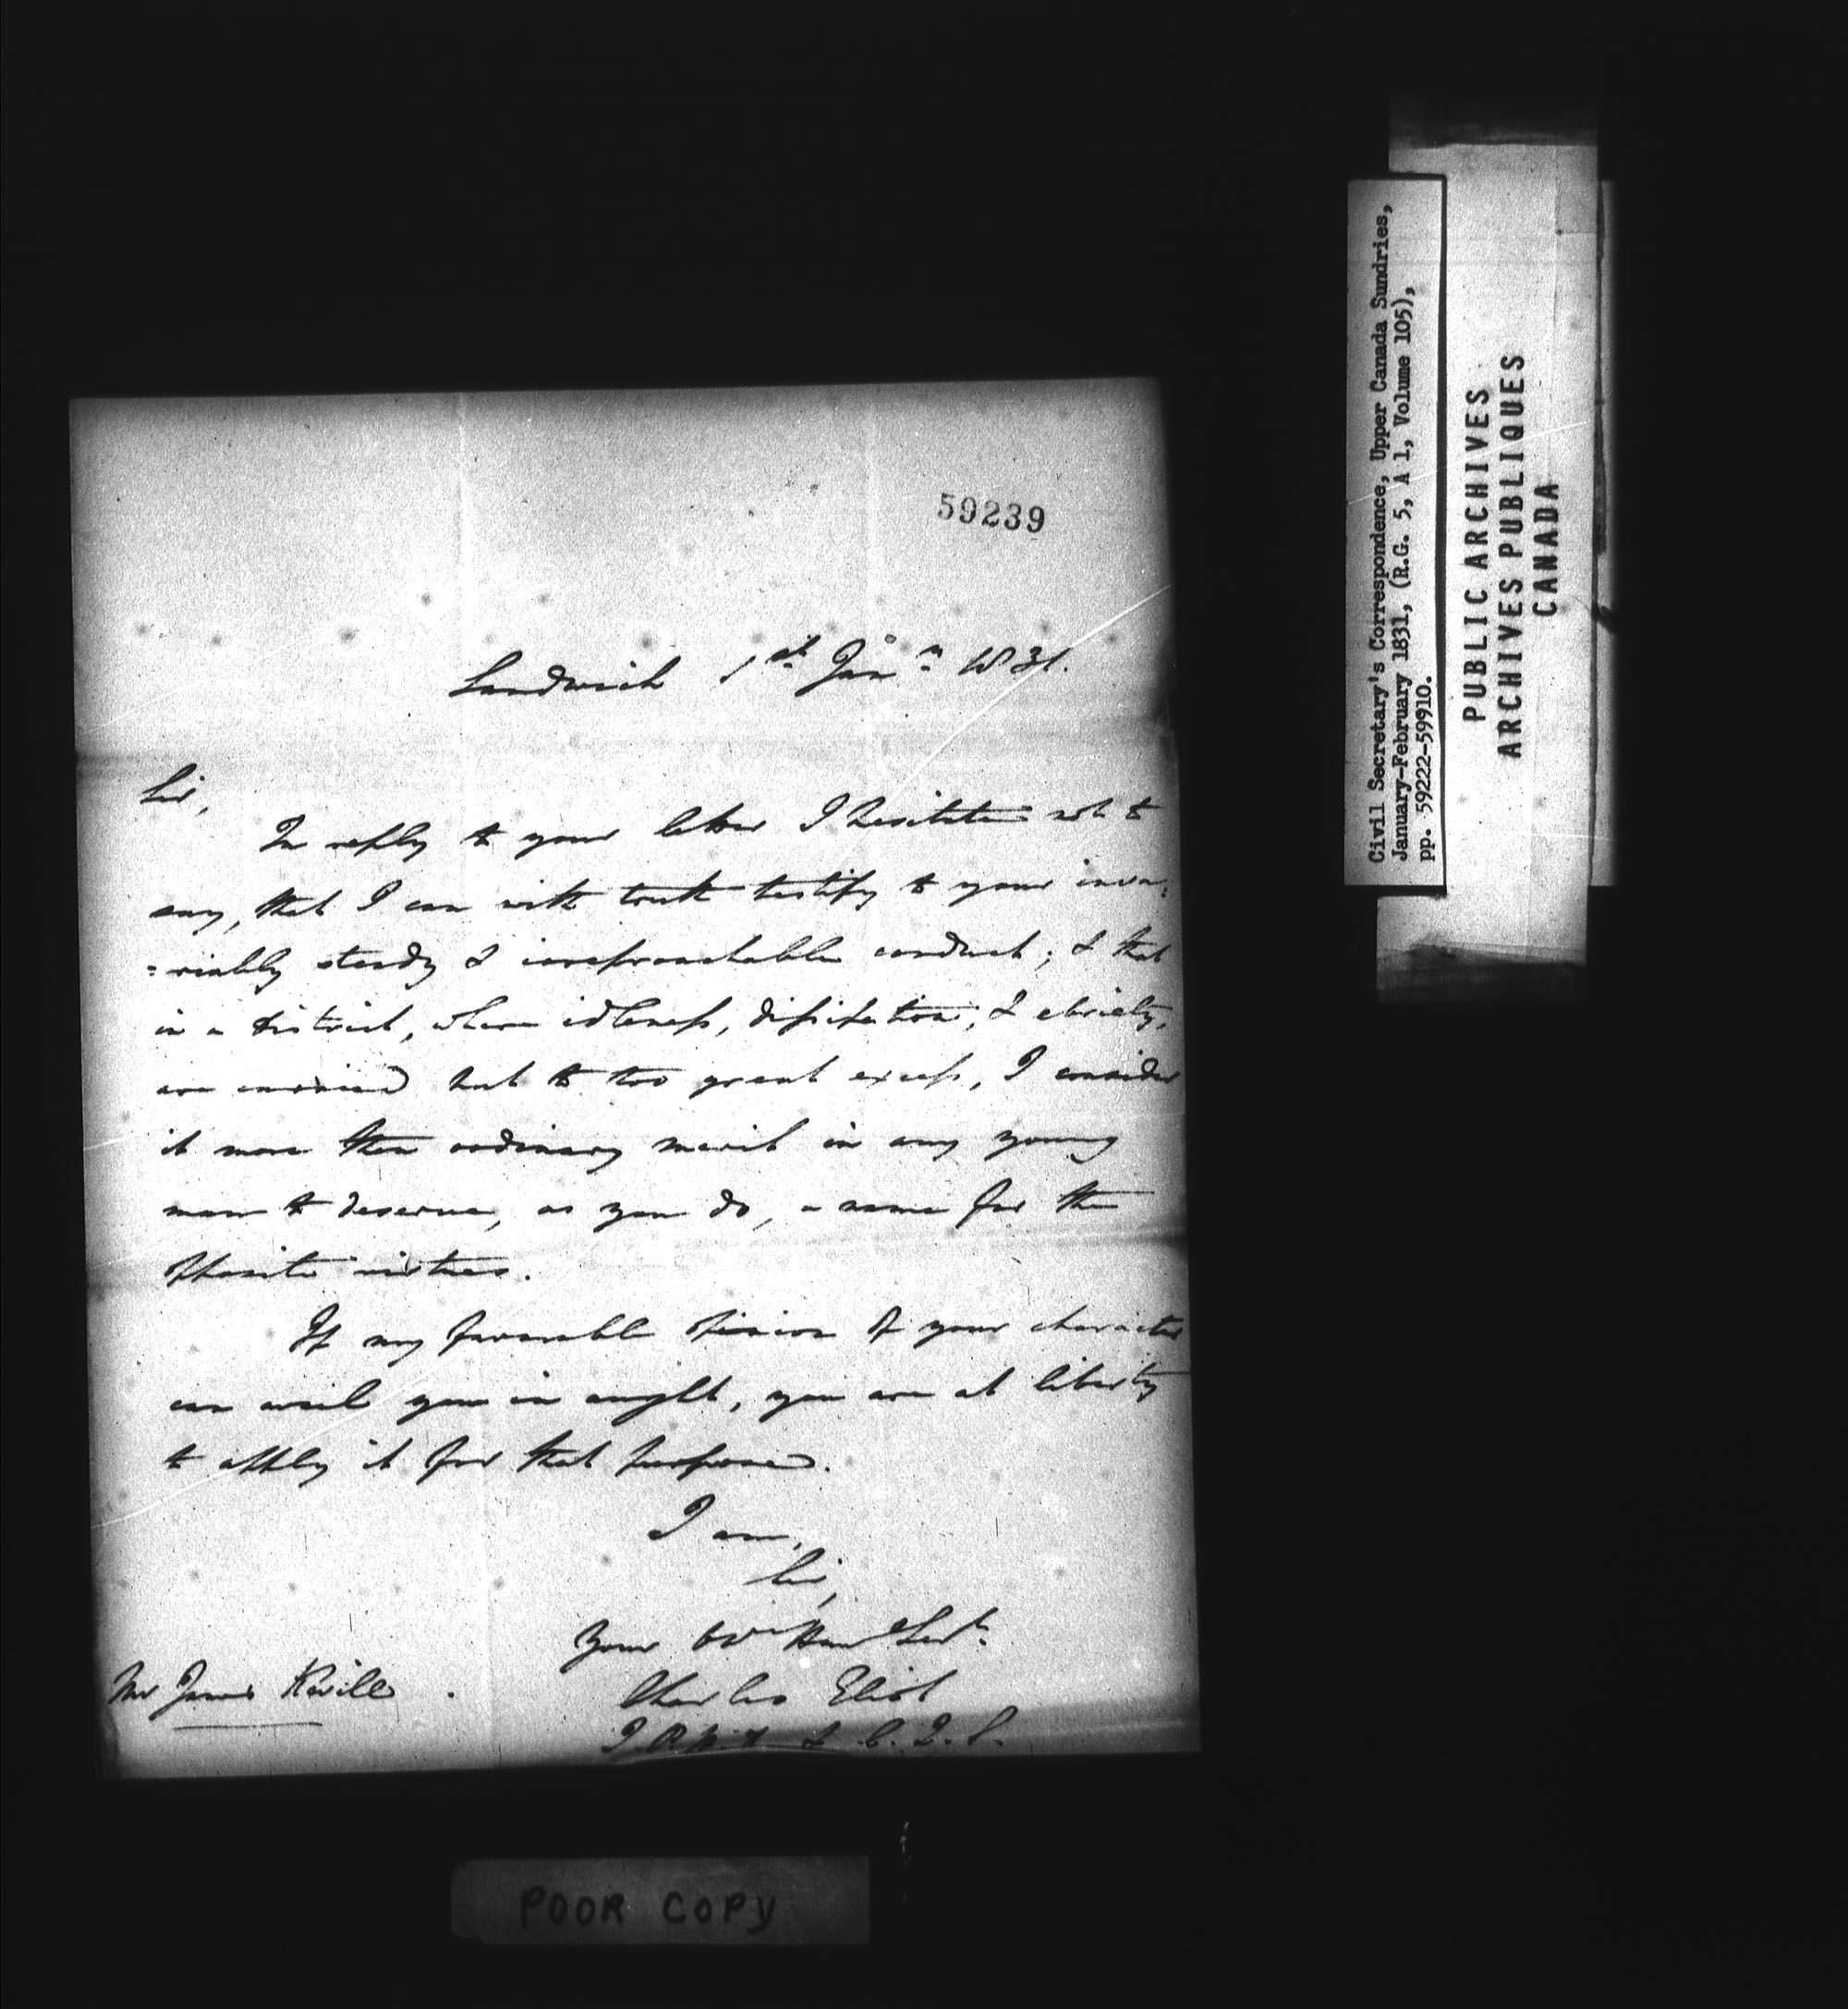 59239
Sandwich 1st Jany 1831.
Sir,
In reply to your letter I hesitate not to
say, that I can with truth testify to your inva=
=riably steady & irreproachable conduct; & that
in a District, where idleness, dissipation, & ebriety,
are carried but to too great excess, I consider
it more than ordinary merit in any young
man to deserve, as you do, a name for the
opposite virtues.
If my favorable opinion of your character
can avail you in aught, you are at liberty
to apply it for that purpose.
I am,
Sir,
Your Obt Hum Servt
Charles Eliot
Mr James
POOR COPY
Civil Secretary's Correspondence, Upper Canada Sundries,
January-February 1831, (R.G. 5, A 1, Volume 105),
pp. 59222-59910.
PUBLIC ARCHIVES
ARCHIVES PUBLIQUES
CANADA